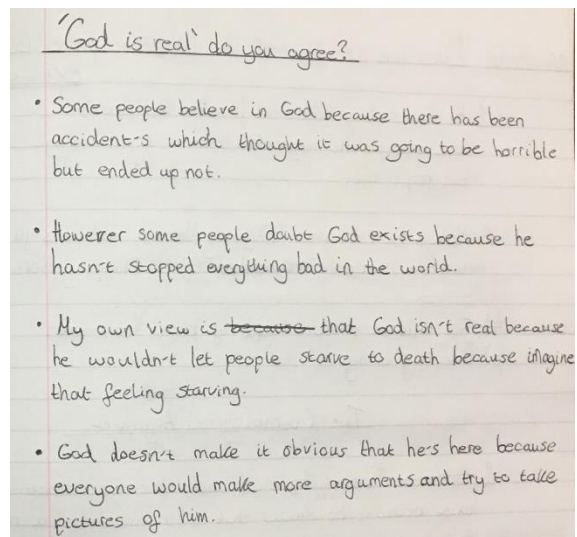 'God is real' do you agree?
• Some people believe in God because there has been
accident-s which thought it was going to be horrible
but ended up not.
• However some people doubt God exists because he
hasn't stopped everything bad in the world.
• My own view is because that God isn't real because
he wouldn't let people starve to death because imagine
that feeling starving.
• God doesn't make it obvious that he's here because
everyone would make more arguments and try to take
pictures of him.